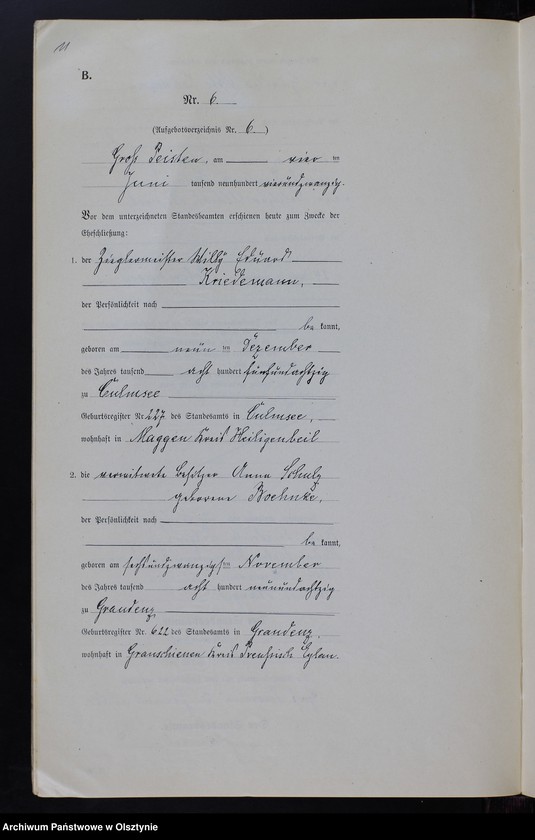 11
B.
Nr. 6.
(Aufgebotsverzeichnis Nr. 6.)
Groß Peisten, am vier ten
Juni tausend neunhundert vierundzwanzig.
Vor dem unterzeichneten Standesbeamten erschienen heute zum Zwecke der
Eheschließung:
1. der Zieglermeister Willy Eduard
Kriedemann,
der Persönlichkeit nach
be kannt,
geboren am neun ten Dezember
des Jahres tausend acht hundert fünfundachtzig
zu Culmsee
Geburtsregister Nr. 227 des Standesamts in Culmsee,
wohnhaft in Maggen Kreis Heiligenbeil
2. die verwitwete Besitzer Anna Schulz
geborene Boehnke,
der Persönlichkeit nach
be kannt,
geboren am sechsundzwanzigsten November
des Jahres tausend acht hundert neunundachtzig
zu Graudenz
Geburtsregister Nr. 622 des Standesamts in Graudenz,
wohnhaft in Granschienen Kreis Preußisch Eylau.
Archiwum Państwowe w Olsztynie